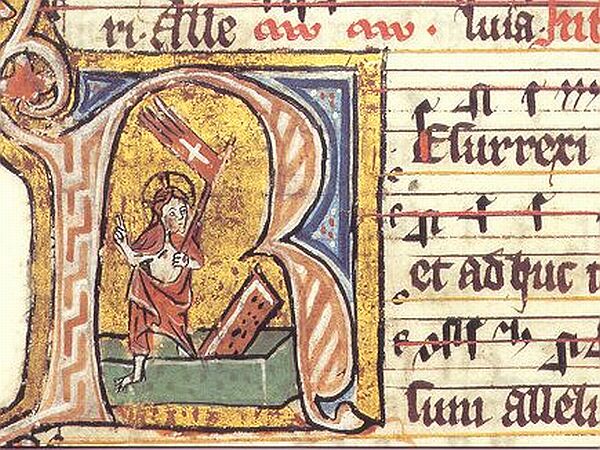 ri. Alle luia. Int
REsurrexi
et adhuc t
sum alleli